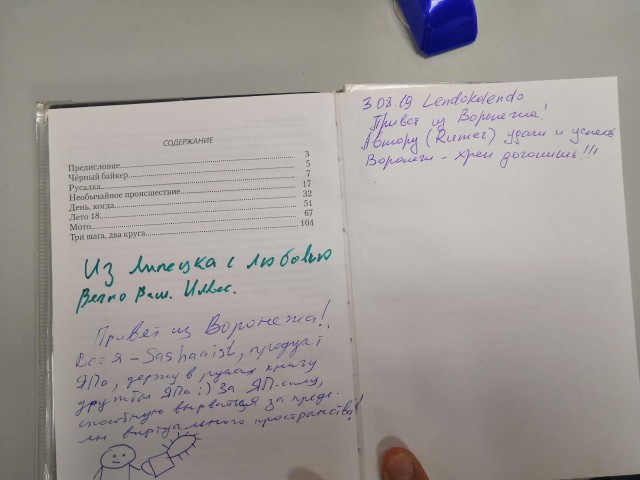 СОДЕРЖАНИЕ
Предисловие 3
Чёрный байкер 5
Русалка 7
Необычайное происшествие 17
День, когда 32
Лето 18 51
Мото 67
Три шага, два круга 104
Из Липецка с любовью
Вечно Ваш.
Привет из Воронежа!
Вся я - Sashaaist, продукт
ЯПа, держу в руках книгу
дружбы ЯПа :) За ЯП-силу,
способную вырваться за преде-
лы виртуального пространства!
3.08.19 Lendokolendo
Привет из Воронежа!
Автору (Rumer) удачи и успехов
Воронеги - хрен догонишь!!!